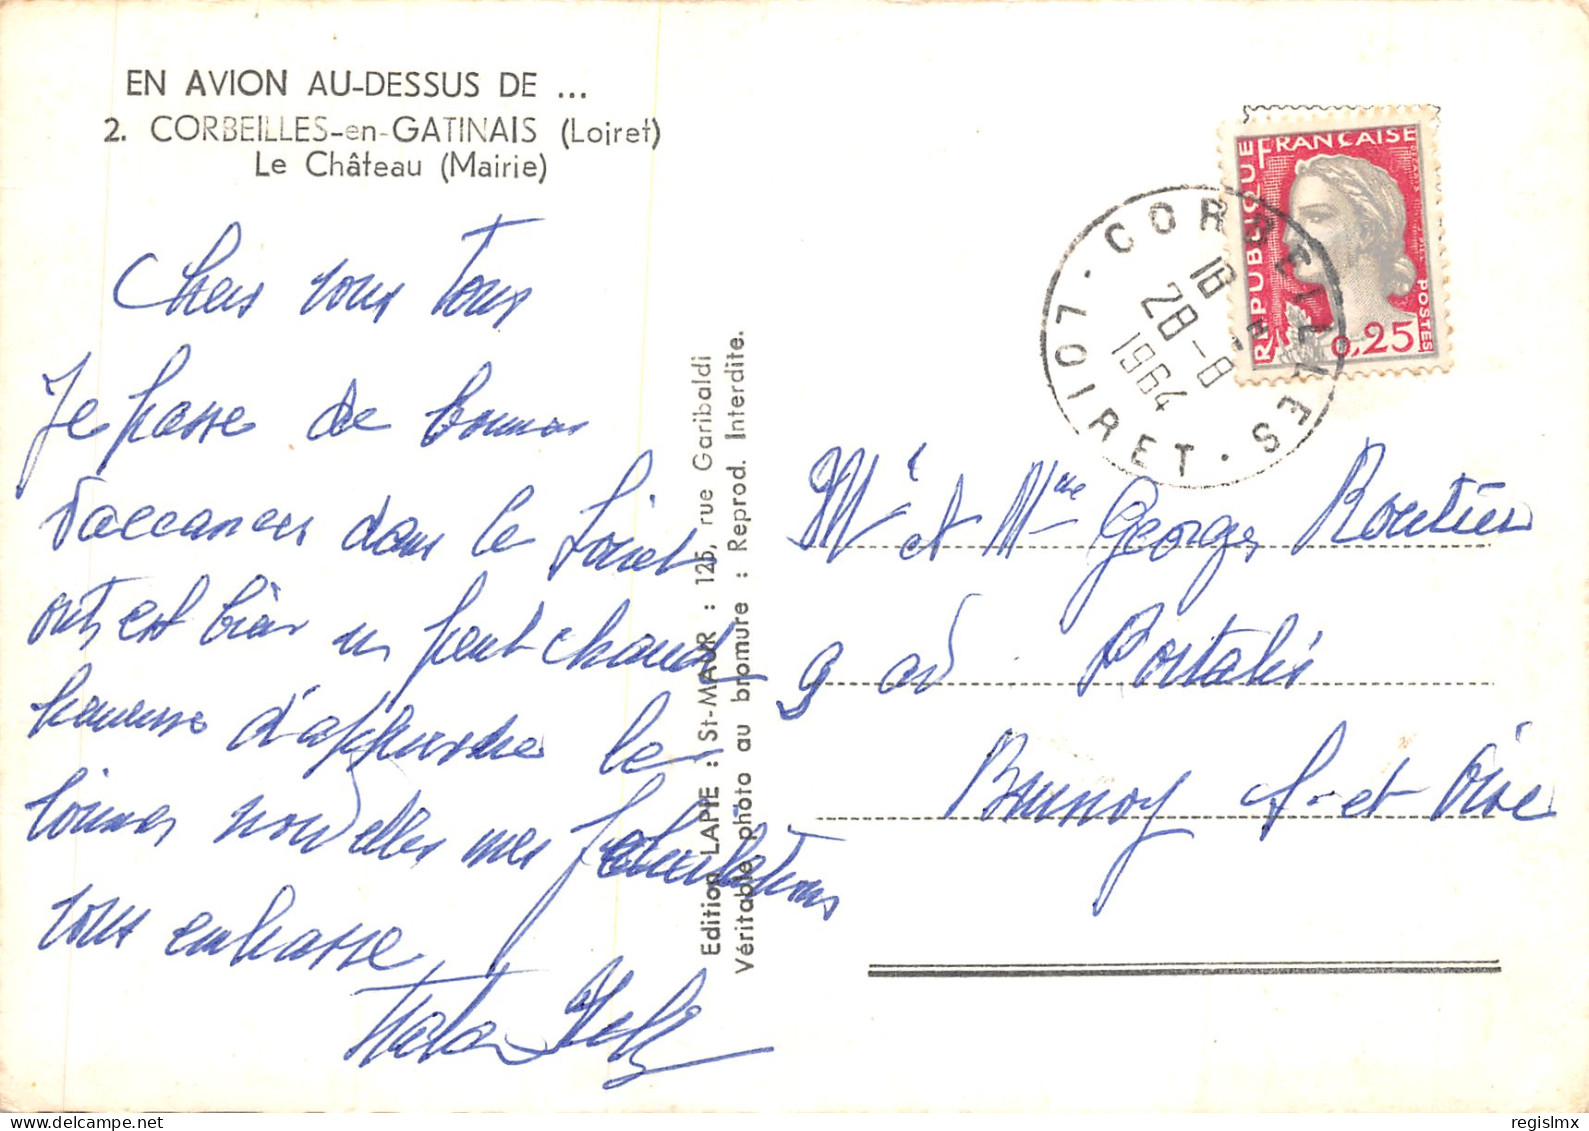 EN AVION AU-DESSUS DE ...
2. CORBEILLES-en-GATINAIS (Loiret)
Le Château (Mairie)
Chers vous Tous
Je passe de bonnes
Vaccances dans le Loiret
est bien un peut chaud
heureuse d'apprendre le
bonnes nouvelles mes félicitations
vous embrasse
Edition LAPIE : St-MAUR : 125, rue Garibaldi
Véritable photo au bromure : Reprod. Interdite.
REPUBLIQUE FRANÇAISE
POSTES
0,25
CORBEILLES
16 H
28-8
1964
LOIRET
Mr et Mme Georges Routier
9 av Portalis
Brunoy S.-et Oise
regislmx